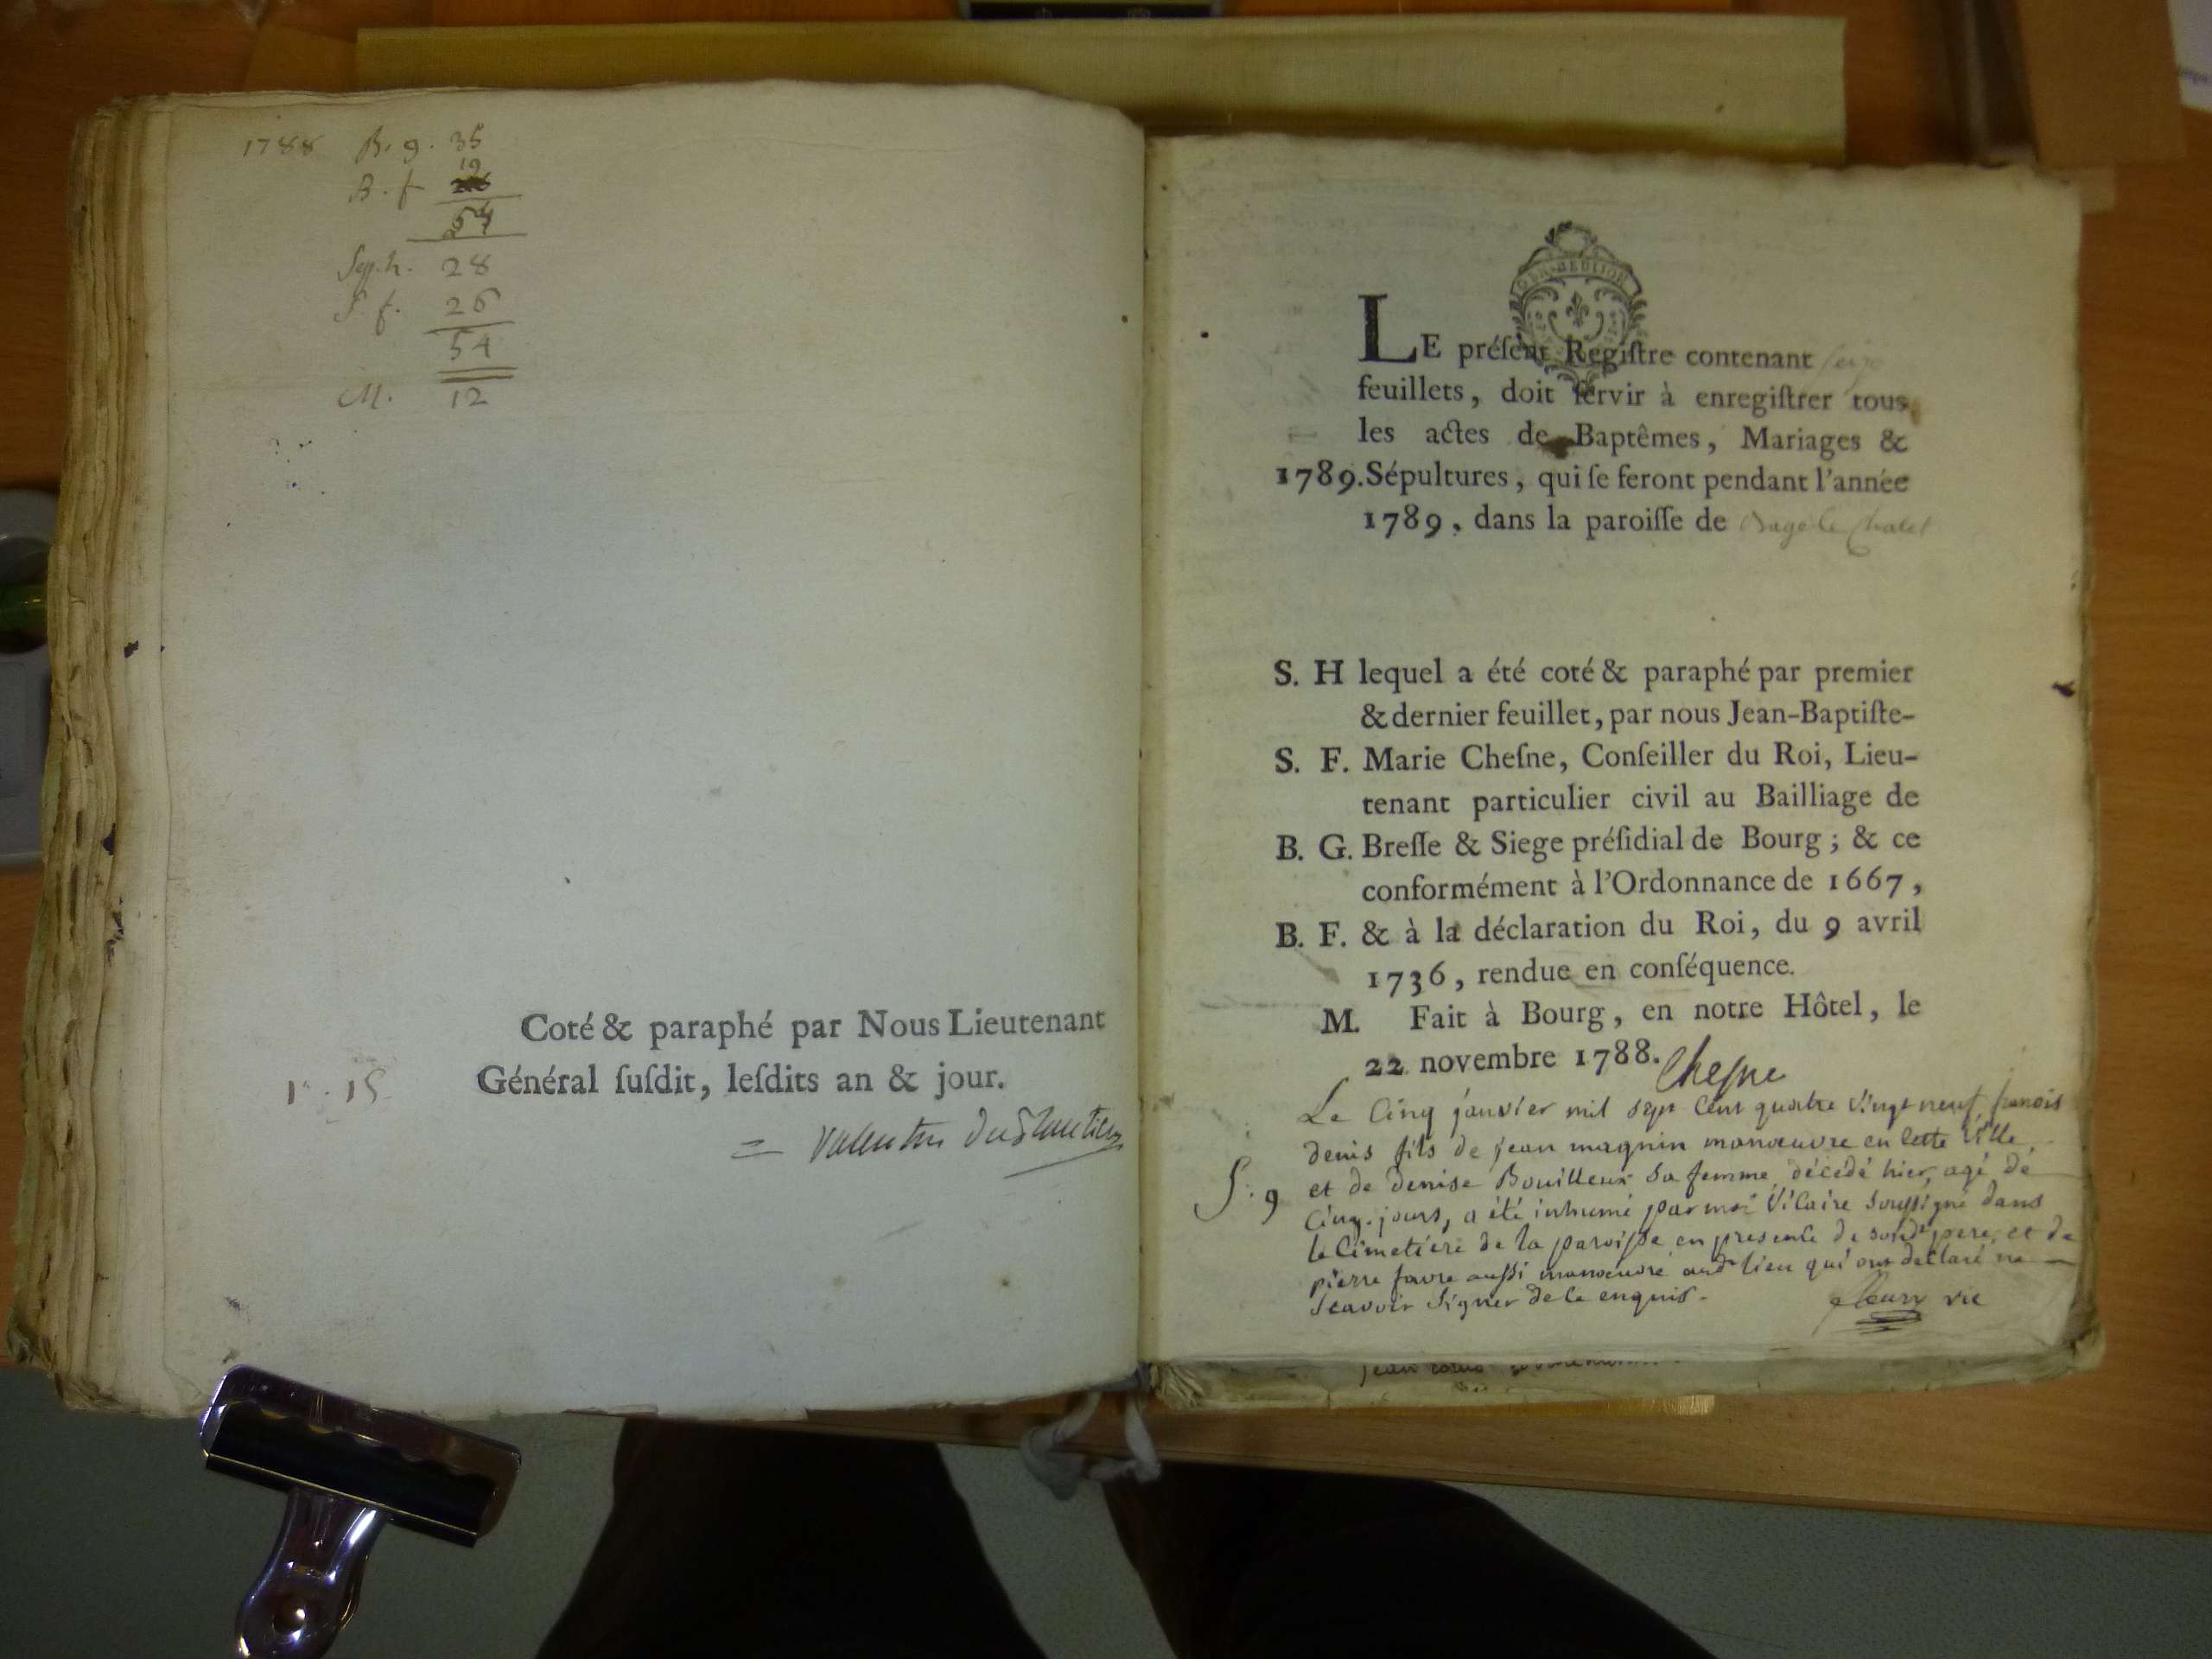 1788 B. g. 35
B. f 19
54
Sep. h. 28
S. f. 26
54
M. 12
Coté & paraphé par Nous Lieutenant
Général ſuſdit, leſdits an & jour.
LE préſent Regiſtre contenant seize
feuillets, doit ſervir à enregiſtrer tous
les actes de Baptêmes, Mariages &
1789. Sépultures, qui ſe feront pendant l'année
1789, dans la paroiſſe de Bagé le Chatel
S. H lequel a été coté & paraphé par premier
& dernier feuillet, par nous Jean-Baptiſte-
S. F. Marie Cheſne, Conſeiller du Roi, Lieu-
tenant particulier civil au Bailliage de
B. G. Breſſe & Siege préſidial de Bourg ; & ce
conformément à l'Ordonnance de 1667,
B. F. & à la déclaration du Roi, du 9 avril
1736, rendue en conſéquence.
M. Fait à Bourg, en notre Hôtel, le
22 novembre 1788. Chesne
Le Cinq janvier mil sept cent quatre vingt neuf, franois
denis fils de jean magnin manœuvre en cette ville
et de denise Bouilleux sa femme, décédé hier, agé de
S. g Cinq jours, a été inhumé par moi Vicaire soussigné dans
le Cimetiere de la paroisse en presence de sond.t pere, et de
pierre favre aussi manœuvre aud.t lieu qui ont declaré ne
scavoir signer de ce enquis.
fleury vic